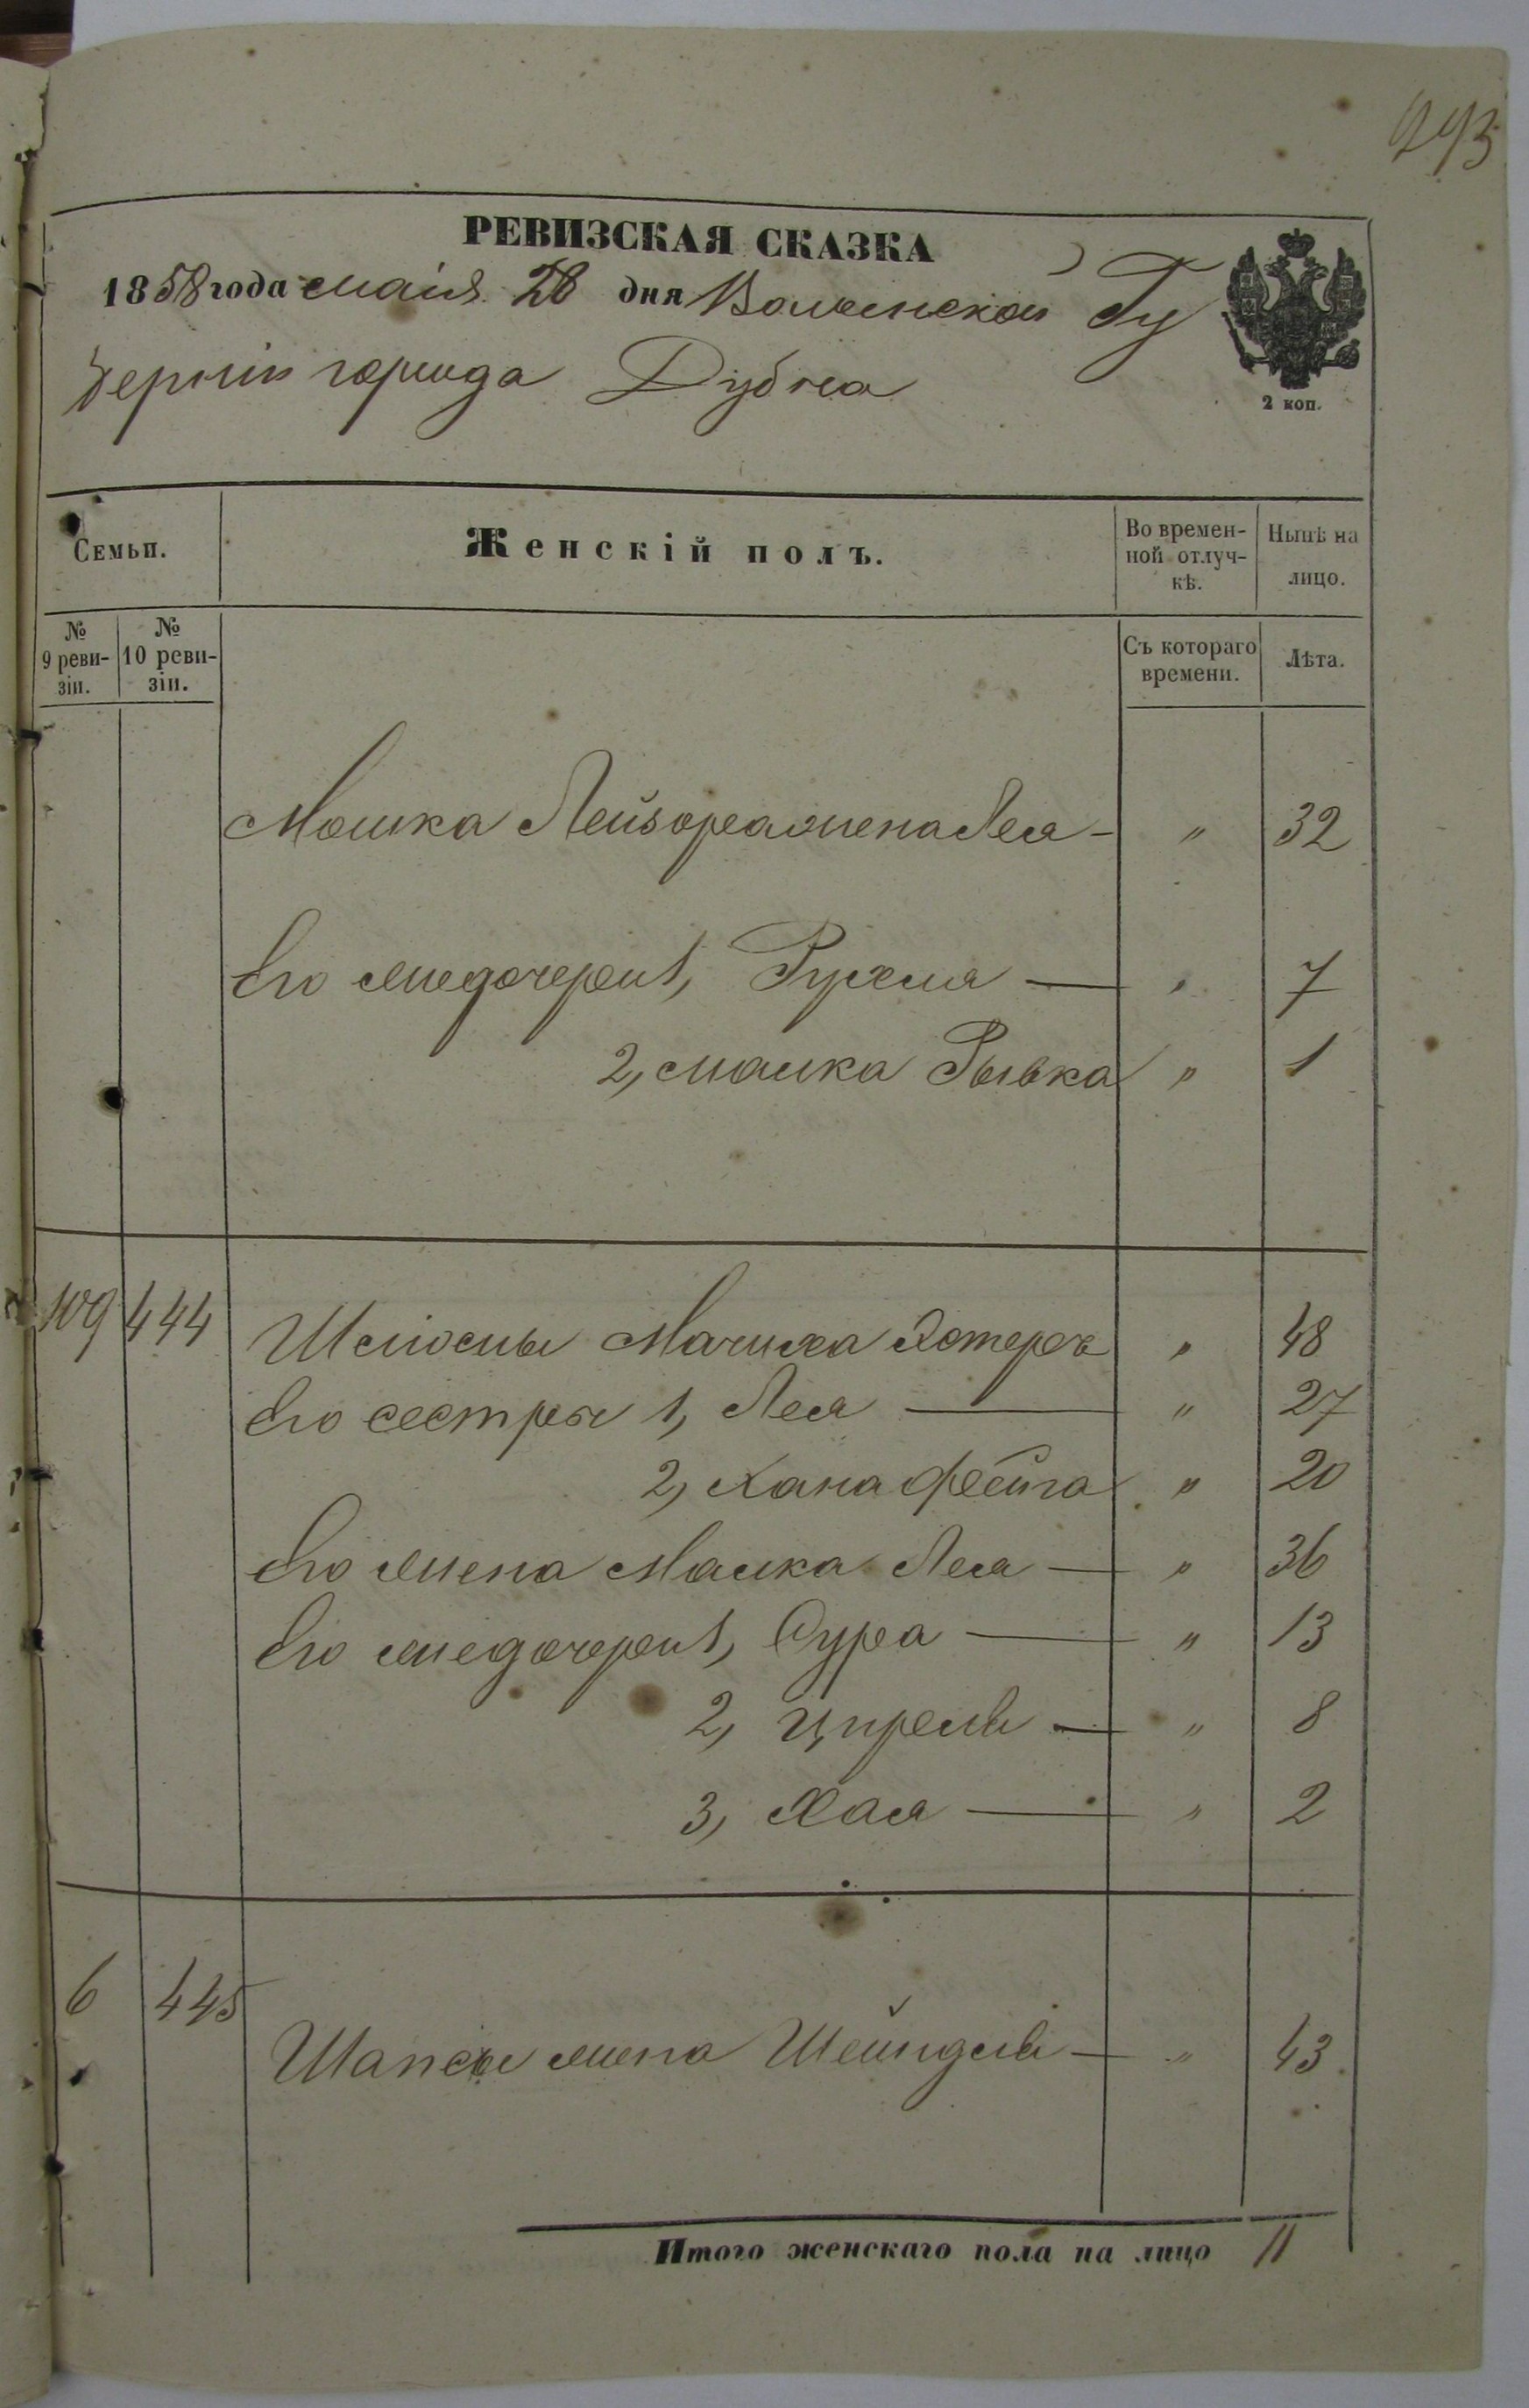 293
РЕВИЗСКАЯ СКАЗКА
1858 года маія 28 дня Волынской Гу
берніи города Дубна
2 коп.
Семьи. Женскій полъ. Во времен-ной отлуч-кѣ. Нынѣ на лицо.
№ 9 реви-зіи. № 10 реви-зіи. Съ котораго времени. Лѣта.
Мошка Лейзора жена Лея - " 32
Его же дочери 1, Рухля — " 7
2, Малка Рывка " 1
109 444 Шліомы Мачиха Эстеръ " 48
Его сестры 1, Лея — " 27
2, Хана Фейга " 20
Его жена Малка Лея — " 36
Его же дочери 1, Сура — " 13
2, Ципрель — " 8
3, Хая — " 2
6 445 Шапсы жена Шейндля — " 43
Итого женскаго пола на лицо 11